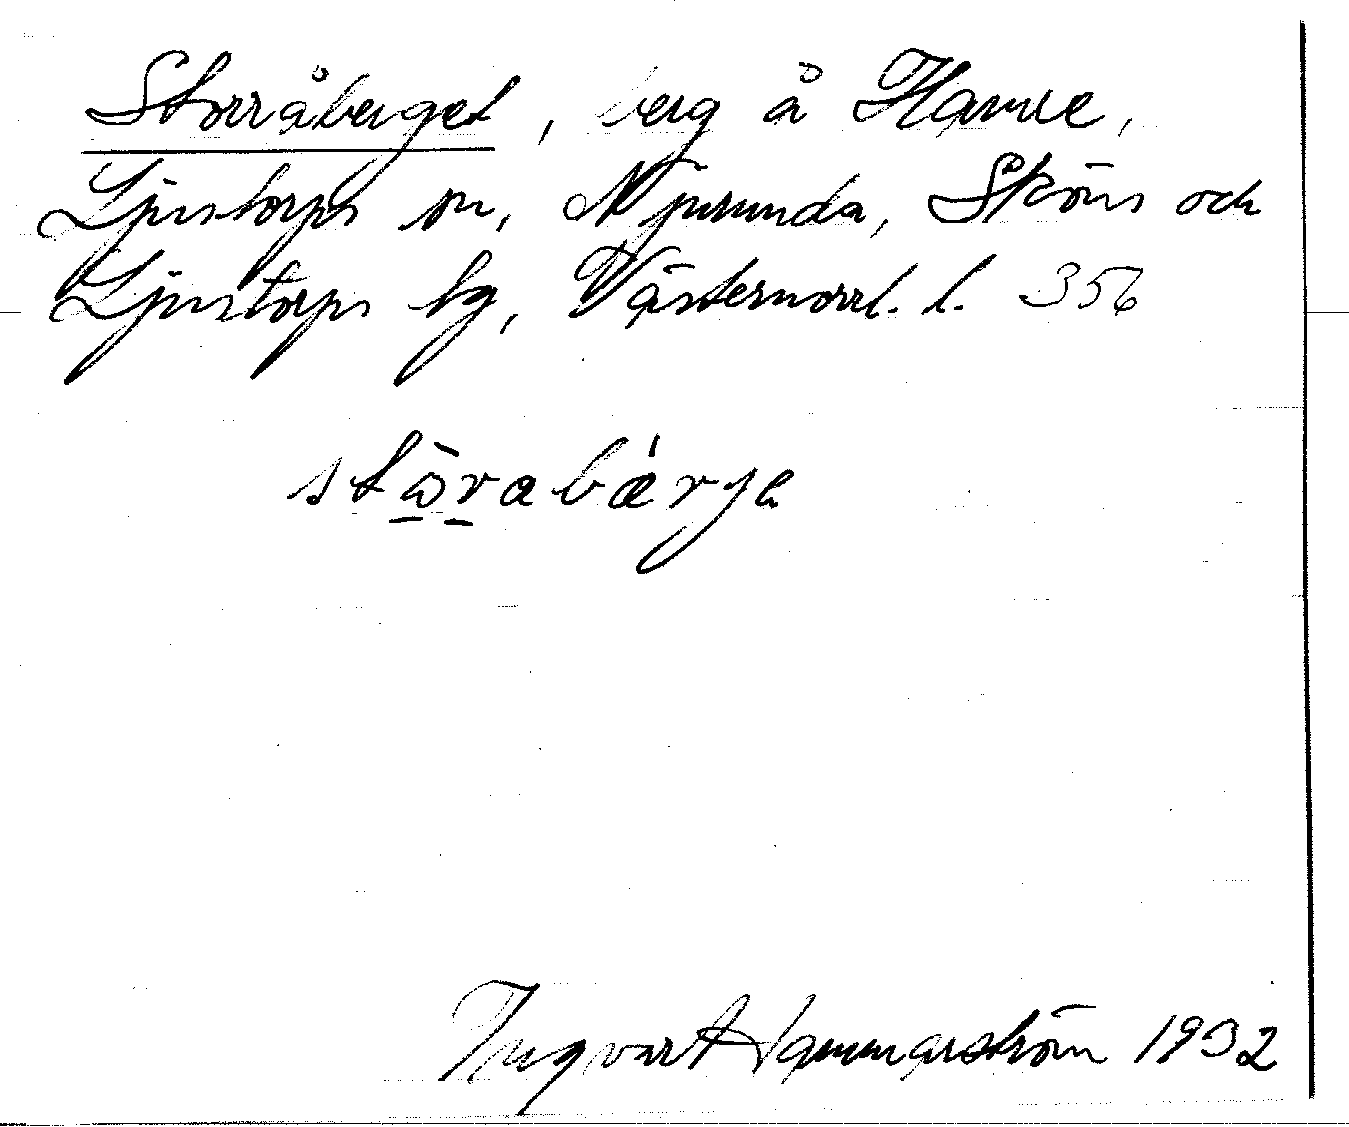 Storråberget, berg å Hamre,
Ljustorps sn, Njurunda, Sköns och
Ljustorps tg, Västernorrl. l. 356
stω̄rabǽrje
Ingvar Hammarström 1932